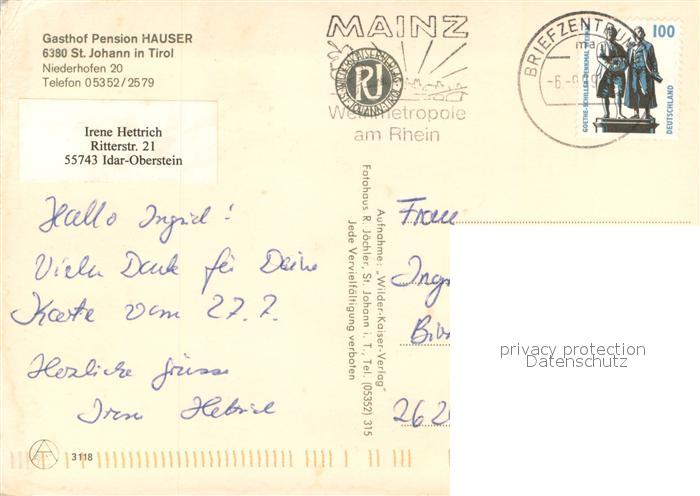 Gasthof Pension HAUSER
6380 St. Johann in Tirol
Niederhofen 20
Telefon 05352/2579
Irene Hettrich
Ritterstr. 21
55743 Idar-Oberstein
MAINZ
RJ
Weinmetropole
am Rhein
BRIEFZENTRUM
ma
-6.-8.
100
GOETHE-SCHILLER-DENKMAL
DEUTSCHLAND
Hallo Ingrid!
Vielen Dank für Deine
Karte vom 27.7.
Herzliche Grüsse
Irene Hettrich
3118
Aufnahme: „Wilder-Kaiser-Verlag"
Fotohaus R. Jöchler, St. Johann i. T., Tel. (05352) 315
Jede Vervielfältigung verboten
Frau
Ingr
262
privacy protection
Datenschutz